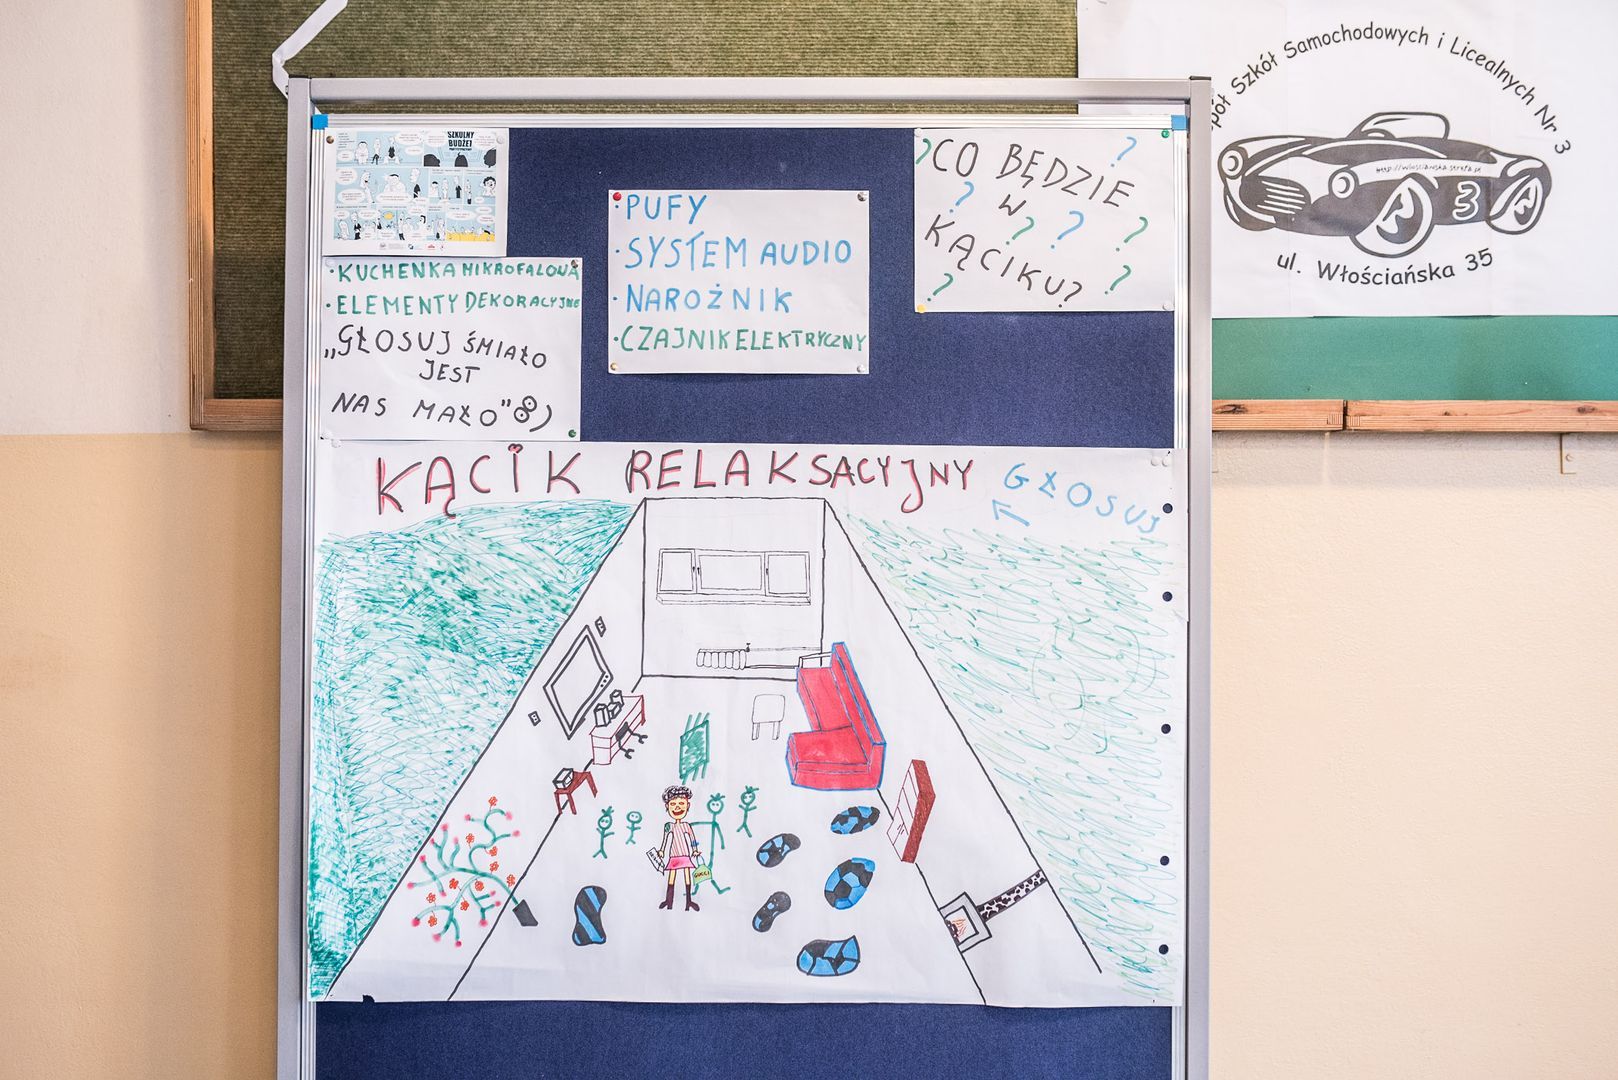 SZKOLNY
BUDŻET
• KUCHENKA MIKROFALOWA
• ELEMENTY DEKORACYJNE
„GŁOSUJ ŚMIAŁO
JEST
NAS MAŁO" 8)
• PUFY
• SYSTEM AUDIO
• NAROŻNIK
• CZAJNIK ELEKTRYCZNY
? CO BĘDZIE ?
? W ? ? ?
KĄCIKU? ?
?
Szkół Samochodowych i Licealnych Nr 3
3
ul. Włościańska 35
KĄCIK RELAKSACYJNY GŁOSUJ
GUCCI